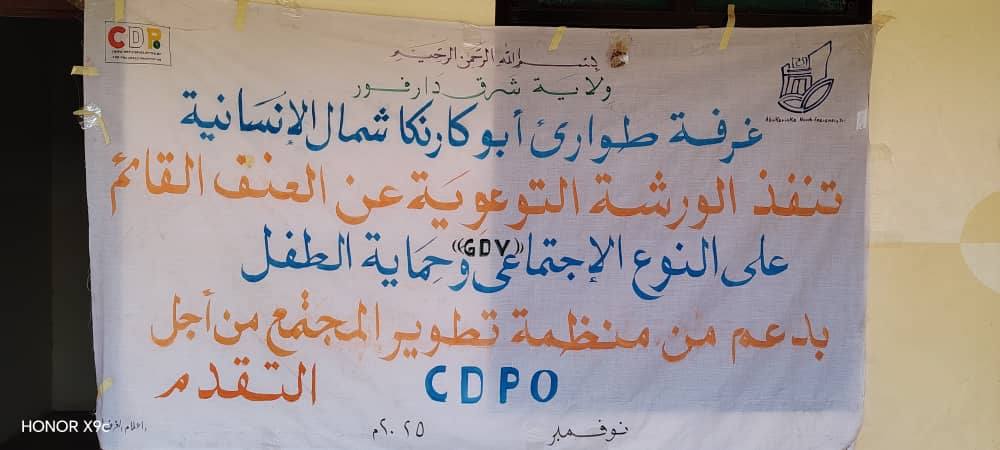 CDP
بسم الله الرحمن الرحيم
ولاية شرق دارفور
غرفة طوارئ أبو كارنكا شمال الإنسانية
تنفذ الورشة التوعوية عن العنف القائم
على النوع الإجتماعي ((GDV)) وحماية الطفل
بدعم من منظمة تطوير المجتمع من أجل
التقدم CDPO
نوفمبر ٢٠٢٥م
HONOR X9c